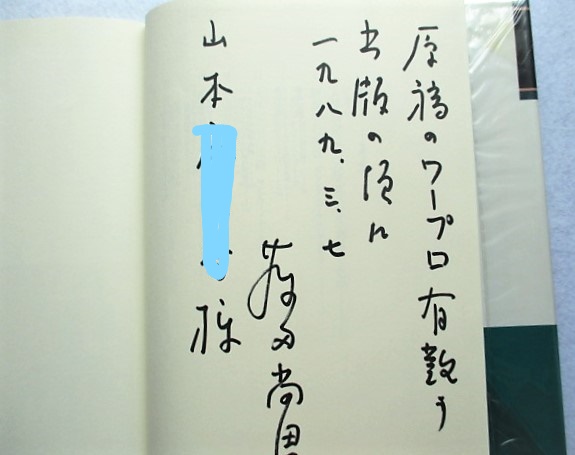 原稿のワープロ有難う
出版の頃に
一九八九、三、七
田尚
山本 様